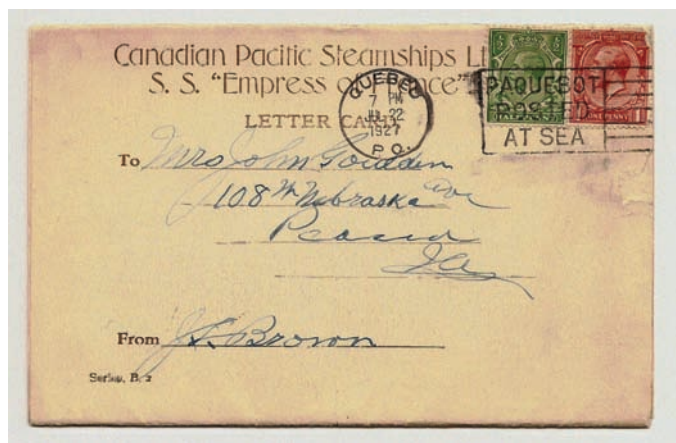 Canadian Pacific Steamships L
S. S. "Empress of France"
LETTER CARD
QUEBEC
7 PM
JL 22
1927
P.Q.
PAQUEBOT
POSTED
AT SEA
HALF PENNY
ONE PENNY
To Mrs John
108 W Nebraska Ave
Peoria
Ill
From J. Brown
Series B. 2